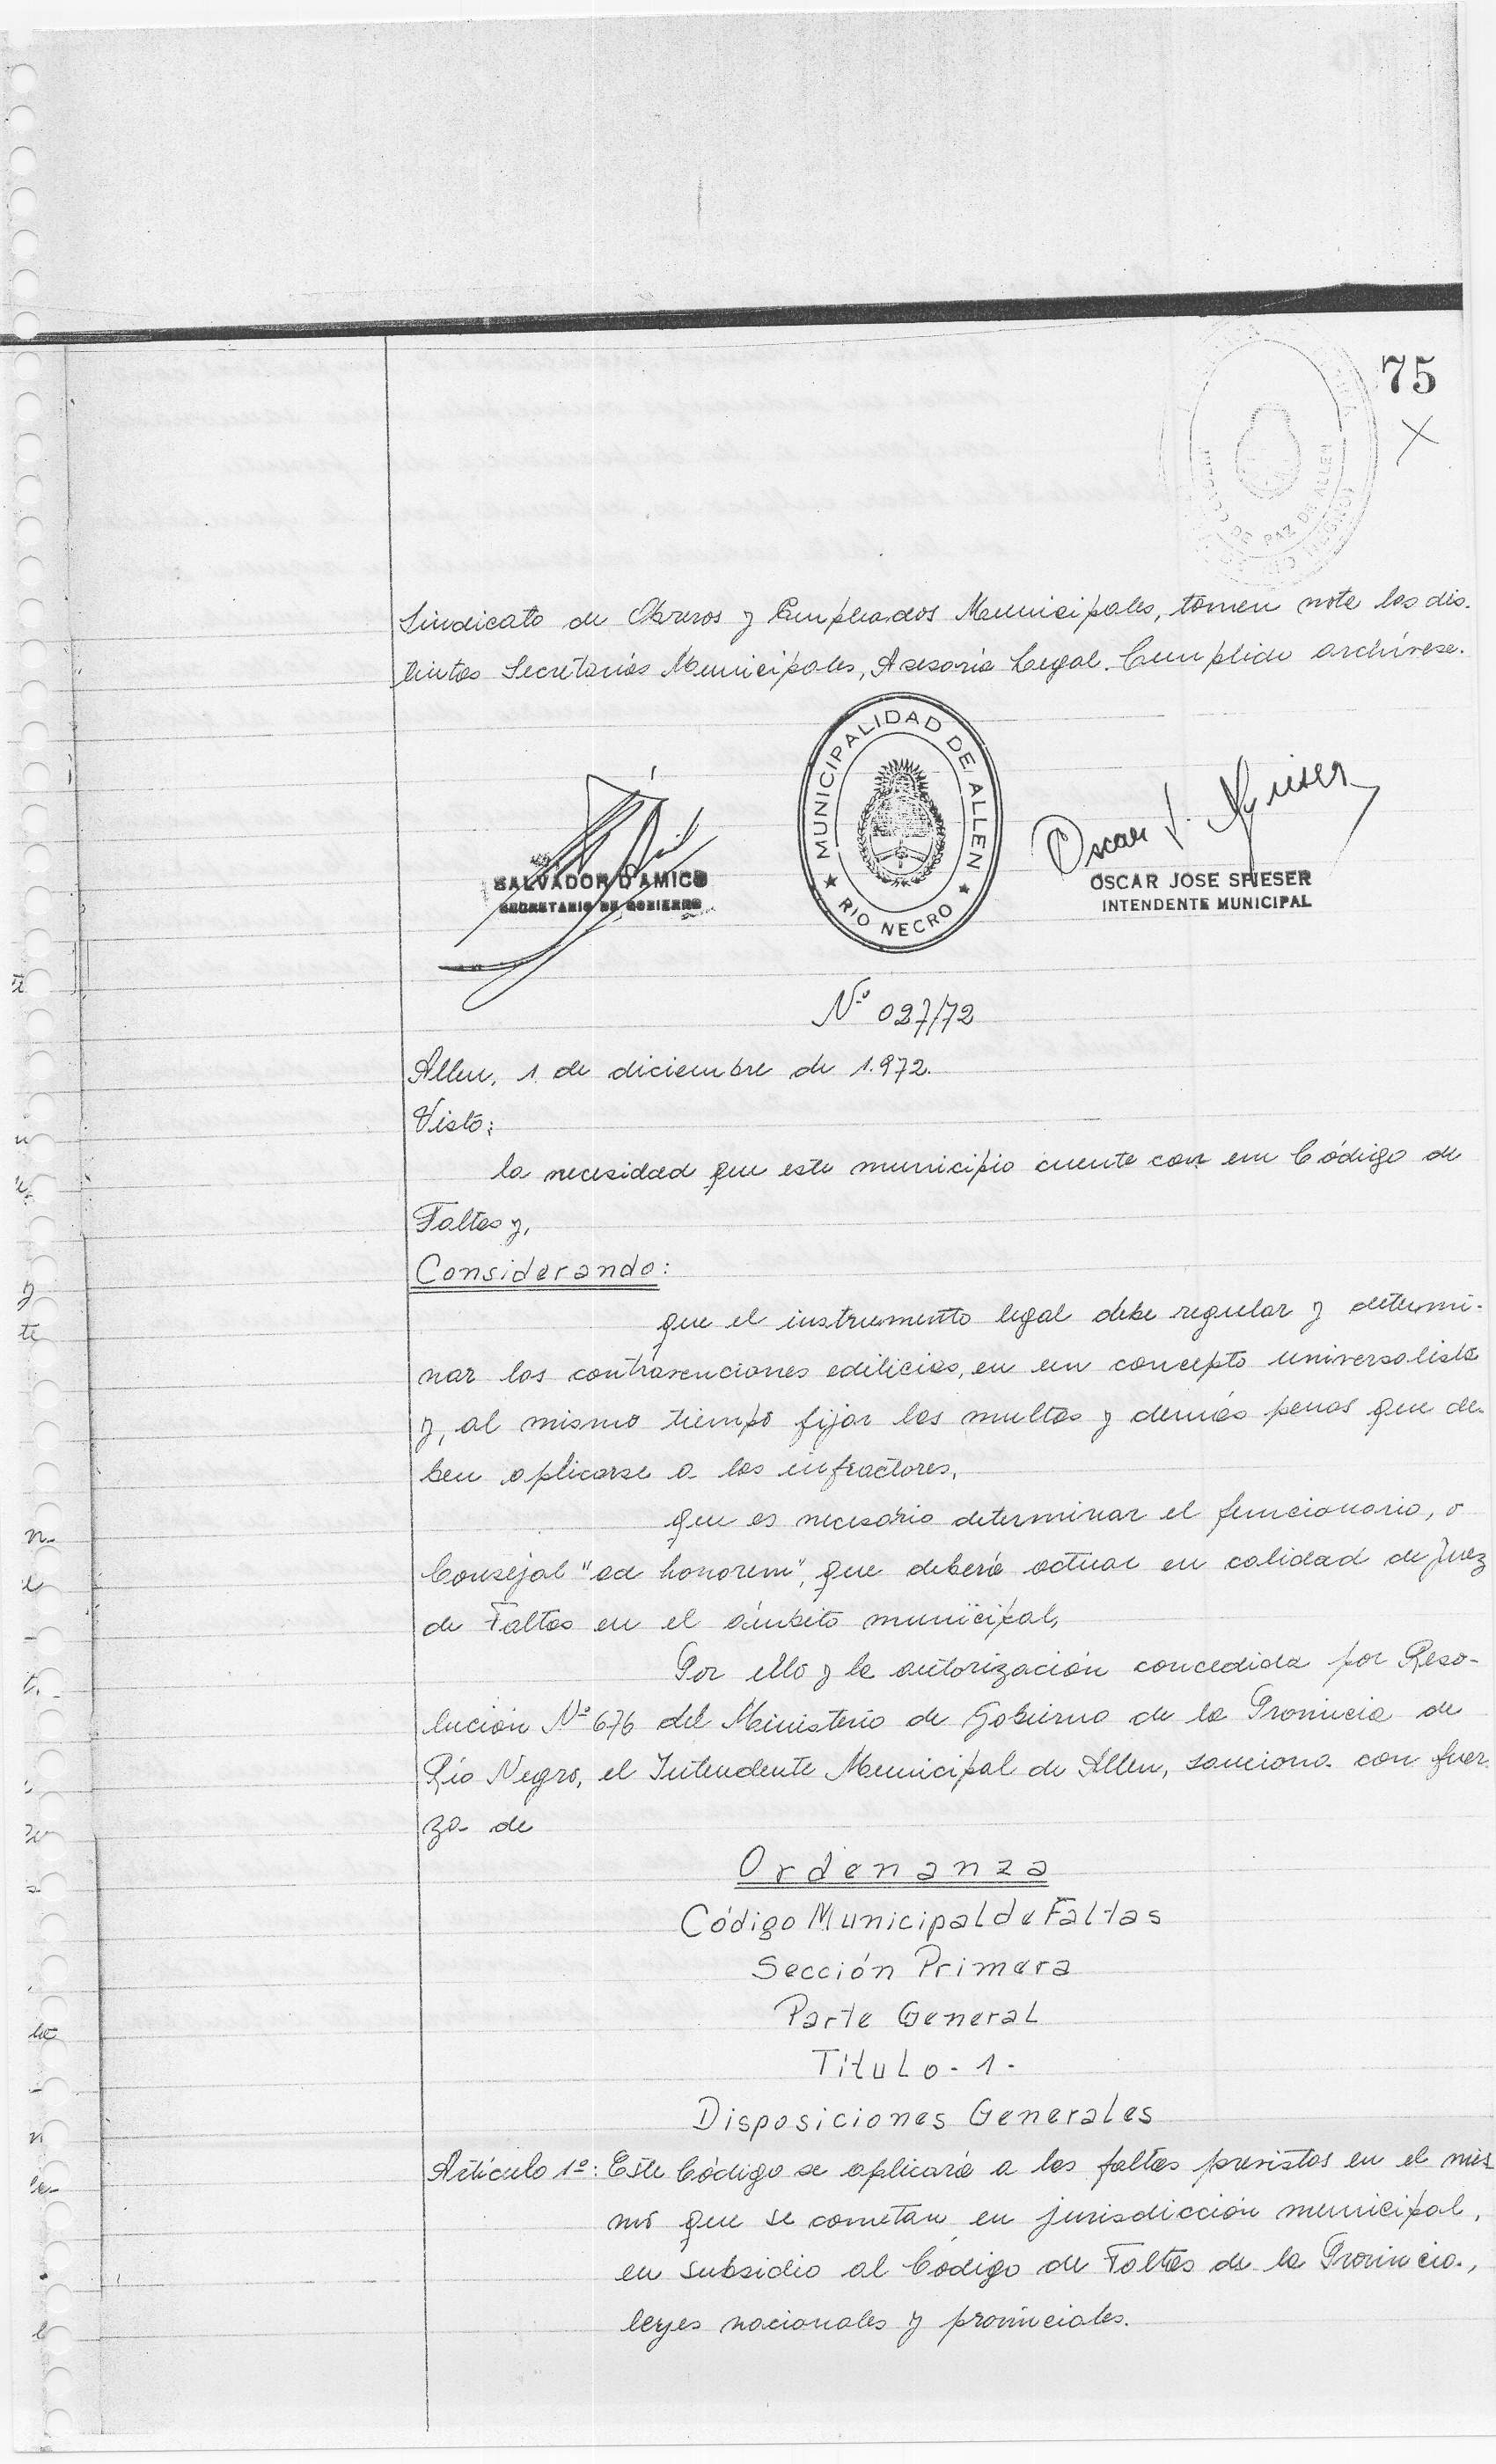 75
X
JUZGADO DE PAZ DE ALLEN
(RIO NEGRO)
Sindicato de Obreros y Empleados Municipales, tomen nota las dis-
tintas Secretarías Municipales, Asesoría Legal. Cumplido archívese.
MUNICIPALIDAD DE ALLEN
RIO NEGRO
SALVADOR D'AMICO
SECRETARIO DE GOBIERNO
Oscar J. Spieser
OSCAR JOSE SPIESER
INTENDENTE MUNICIPAL
Nº 027/72
Allen, 1 de diciembre de 1.972.
Visto:
la necesidad que este municipio cuente con un Código de
Faltas y,
Considerando:
que el instrumento legal debe regular y determi-
nar las contravenciones edilicias, en un concepto universalista
y, al mismo tiempo fijar las multas y demás penas que de-
ben aplicarse a los infractores,
que es necesario determinar el funcionario, o
Consejal "ad honorem", que deberá actuar en calidad de Juez
de Faltas en el ámbito municipal,
Por ello y la autorización concedida por Reso-
lución Nº 676 del Ministerio de Gobierno de la Provincia de
Río Negro, el Intendente Municipal de Allen, sanciona con fuer-
za de
Ordenanza
Código Municipal de Faltas
Sección Primera
Parte General
Título - 1 -
Disposiciones Generales
Artículo 1º: Este Código se aplicará a las faltas previstas en el mis-
mo que se cometan en jurisdicción municipal,
en subsidio al Código de Faltas de la Provincia,
leyes nacionales y provinciales.